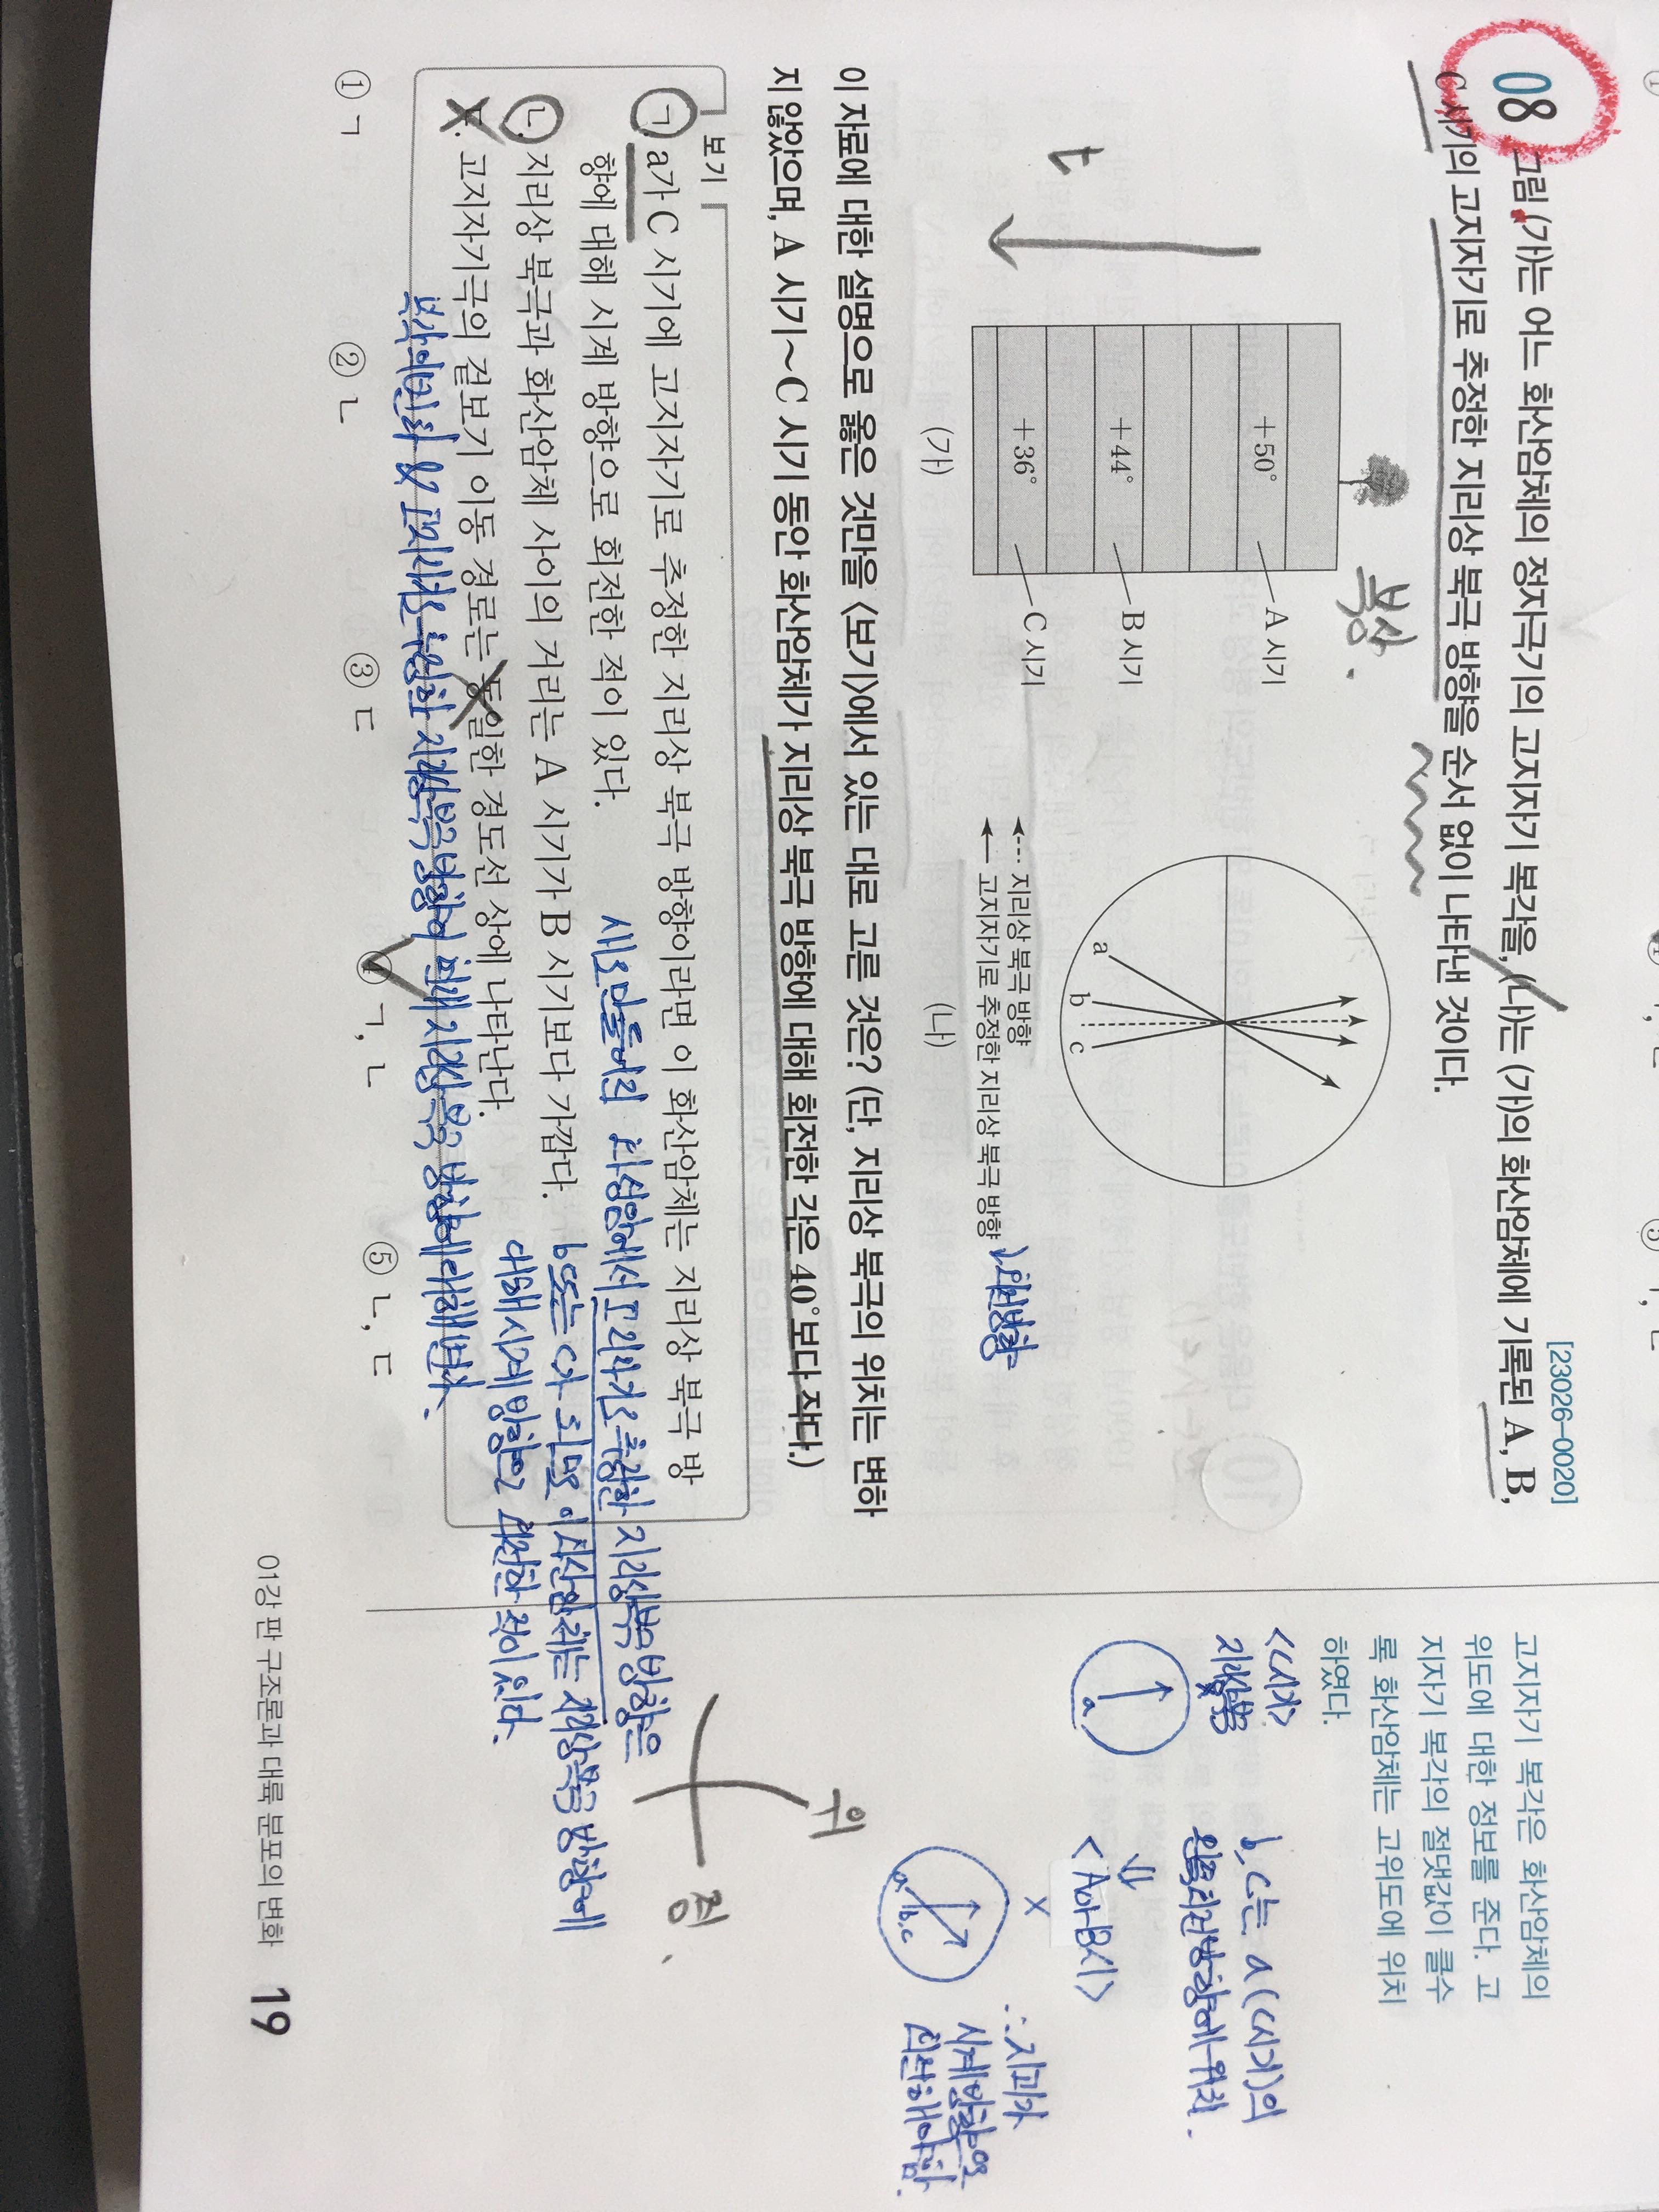 08
[23026-0020]
그림 (가)는 어느 화산암체의 정자극기의 고지자기 복각을, (나)는 (가)의 화산암체에 기록된 A, B,
C 시기의 고지자기로 추정한 지리상 북극 방향을 순서 없이 나타낸 것이다.
북상.
t
+50°
A 시기
+44°
B 시기
+36°
C 시기
(가)
a
b
c
지리상 북극 방향
고지자기로 추정한 지리상 북극 방향
(나)
이 자료에 대한 설명으로 옳은 것만을 〈보기〉에서 있는 대로 고른 것은? (단, 지리상 북극의 위치는 변하
지 않았으며, A 시기~C 시기 동안 화산암체가 지리상 북극 방향에 대해 회전한 각은 40°보다 작다.)
보기
ㄱ. a가 C 시기에 고지자기로 추정한 지리상 북극 방향이라면 이 화산암체는 지리상 북극 방
향에 대해 시계 방향으로 회전한 적이 있다.
ㄴ. 지리상 북극과 화산암체 사이의 거리는 A 시기가 B 시기보다 가깝다.
ㄷ. 고지자기극의 겉보기 이동 경로는 동일한 경도선 상에 나타난다.
새로 만들어진 화성암에서 고지자기로 추정한 지리상 북극 방향은
b또는 c가 되므로 이 화산암체는 지리상 북극 방향에
대해 시계 방향으로 회전한 적이 있다.
복각의 변화 & 고지자기로 추정한 지리상 북극 방향이 현재 지리상 북극 방향에 대해 변화.
① ㄱ
② ㄴ
③ ㄷ
④ ㄱ, ㄴ
⑤ ㄴ, ㄷ
고지자기 복각은 화산암체의
위도에 대한 정보를 준다. 고
지자기 복각의 절댓값이 클수
록 화산암체는 고위도에 위치
하였다.
<C시기>
지리상북극
a
b, c는 a(C시기)의
왼쪽
<A와B시>
a
b,c
∴ 지괴가
시계방향으로
회전해야함.
위
침
01강 판 구조론과 대륙 분포의 변화
19